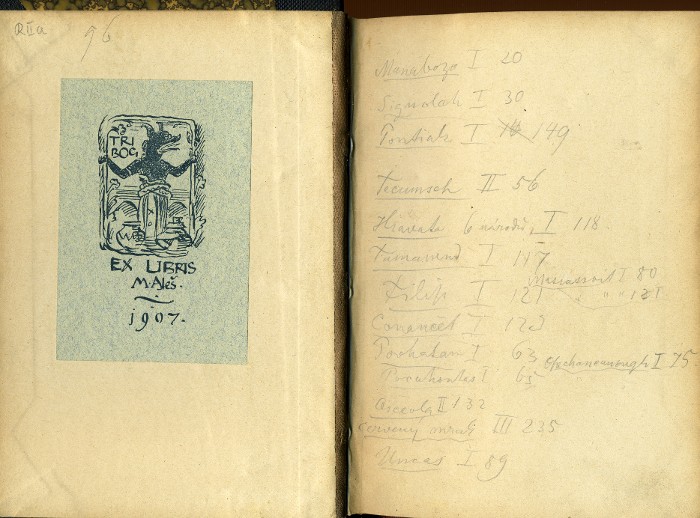 R II a
96
TRI
BOG
EX LIBRIS
M. Aleš.
1907.
Manabozo I 20
Sigualah I 30
Pontiak I 149
Tecumseh II 56
Hiavata 6 národů, I 118
Tamanend I 117
Massassoit I 80
Filip I 121
" " " 121
Conanchet I 123
Powhatan I 63
Opechancanough I 75
Pocahontas I 65
Osceola II 132
Červený mrak III 235
Uncas I 89